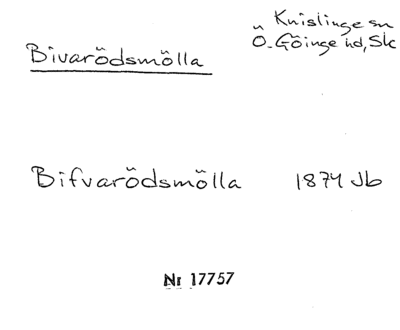 Knislinge sn
Bivarödsmölla
Ö. Göinge hd, Sk
Bifvarödsmölla 1874 Jb
Nr 17757